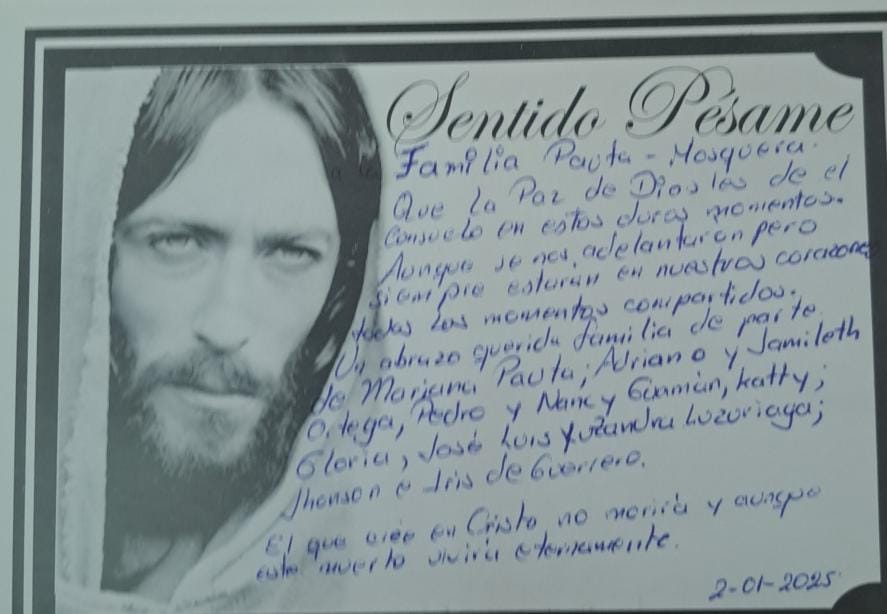 Sentido Pésame
Familia Pauta - Mosquera.
Que la Paz de Dios les de el
consuelo en estos duros momentos.
Aunque se nos adelantaron pero
siempre estarán en nuestros corazones
todos los momentos compartidos.
Un abrazo querida familia de parte
de Mariana Pauta; Adriano y Jamileth
Ortega, Pedro y Nancy Guamàn, Katty;
Gloria, José Luis y Luzuriaga;
Jhonson e Iris de Guerrero.
El que crée en Cristo no morirà y aunque
este muerto vivirà eternamente.
2-01-2025